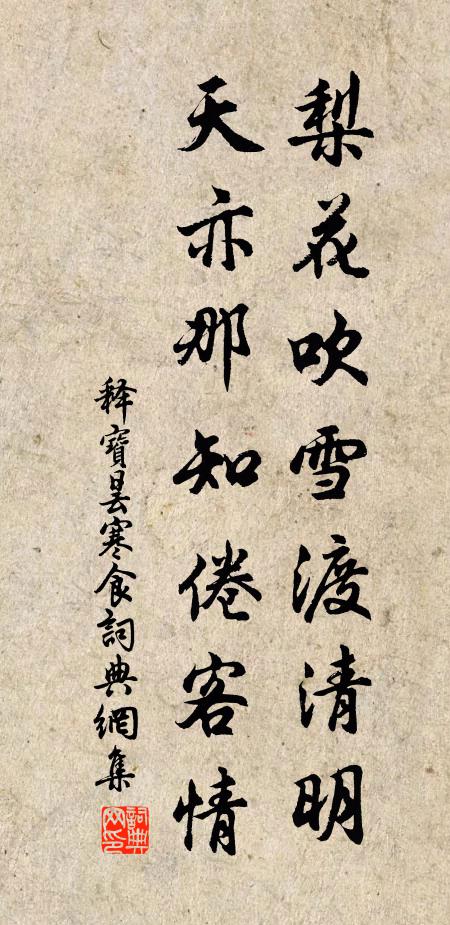 梨花吹雪渡清明
天亦那知倦客情
释寶曇寒食詞典網集
詞典網印